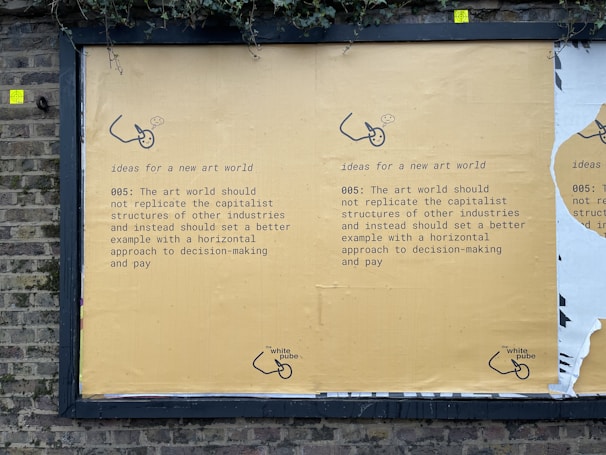 ideas for a new art world
005: The art world should
not replicate the capitalist
structures of other industries
and instead should set a better
example with a horizontal
approach to decision-making
and pay
the
white
pube
ideas for a new art world
005: The art world should
not replicate the capitalist
structures of other industries
and instead should set a better
example with a horizontal
approach to decision-making
and pay
the
white
pube
ideas
005: T
not re
struct